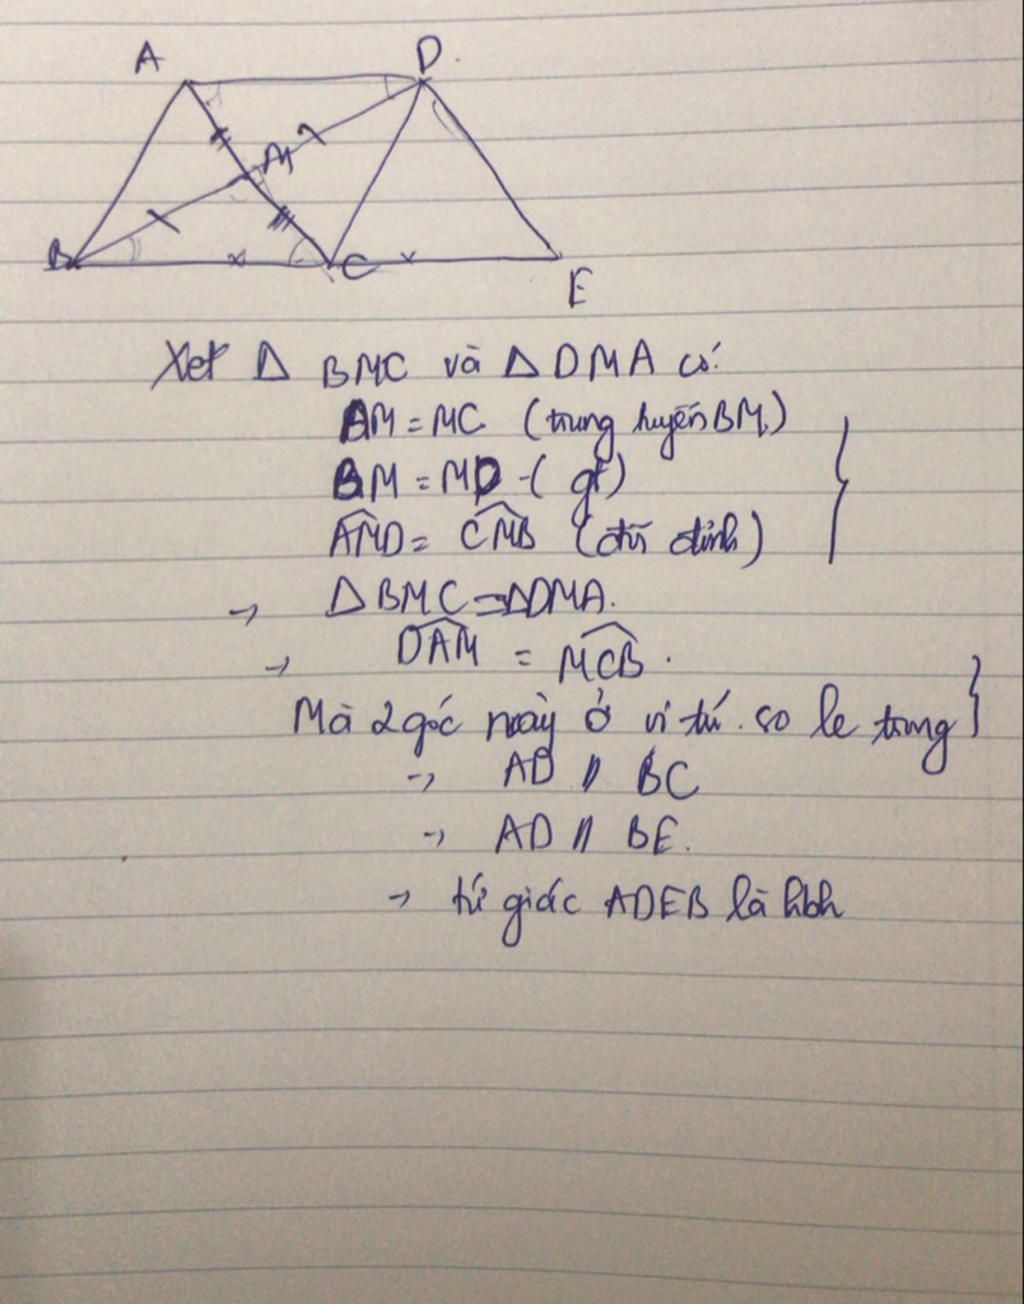 A D
M
B C E
Xét Δ BMC và Δ DMA có:
AM = MC (trung tuyến BM)
BM = MD (gt)
AMD = CMB (đối đỉnh)
→ Δ BMC = ΔDMA.
→ DAM = MCB.
Mà 2 góc này ở vị trí so le trong
→ AD // BC
→ AD // BE.
→ tứ giác ADEB là hbh